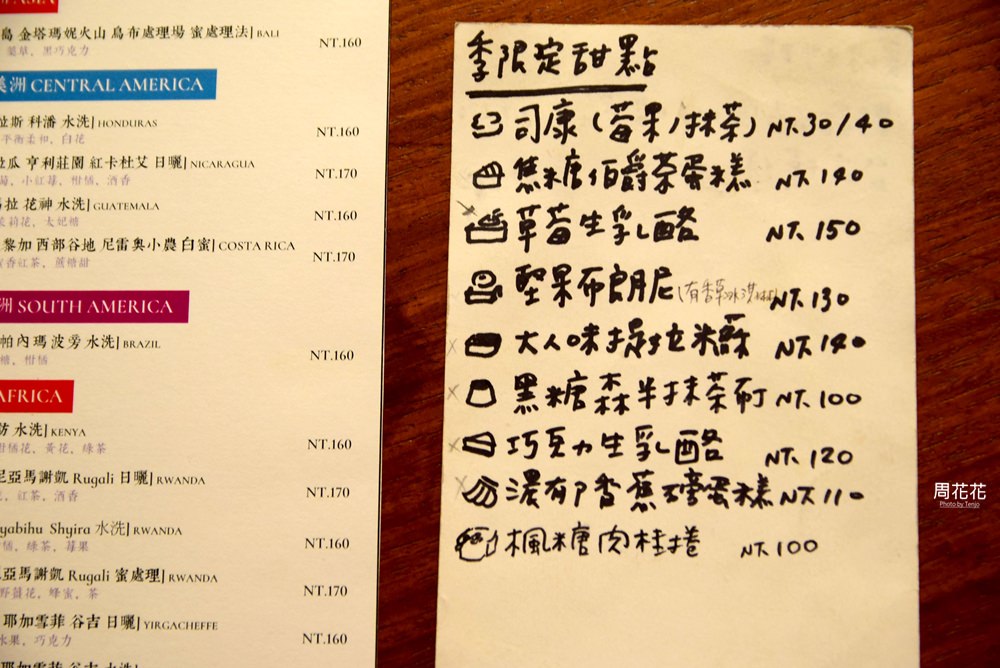 ASIA
島 金塔瑪妮火山 烏布處理場 蜜處理法] BALI NT.160
莓草、黑巧克力
美洲 CENTRAL AMERICA
拉斯 科潘 水洗] HONDURAS NT.160
平衡柔和、白花
拉瓜 亨利莊園 紅卡杜艾 日曬] NICARAGUA NT.170
小紅莓、柑橘、酒香
馬拉 花神 水洗] GUATEMALA NT.160
茉莉花、太妃糖
黎加 西部谷地 尼雷奧小農 白蜜] COSTA RICA NT.170
蜜香紅茶、蔗糖甜
洲 SOUTH AMERICA
帕內瑪 波旁 水洗] BRAZIL NT.160
糖、柑橘
AFRICA
水洗] KENYA NT.160
柑橘花、黃花、綠茶
尼亞馬謝凱 Rugali 日曬] RWANDA NT.170
紅茶、酒香
yabihu Shyira 水洗] RWANDA NT.160
綠茶、莓果
亞馬謝凱 Rugali 蜜處理] RWANDA NT.170
野薑花、蜂蜜、茶
耶加雪菲 谷吉 日曬] YIRGACHEFFE NT.160
水果、巧克力
耶加雪菲 谷吉 水洗]
季限定甜點
司康(莓果/抹茶) NT.30/40
焦糖伯爵茶蛋糕 NT.140
草莓生乳酪 NT.150
堅果布朗尼(有香草冰淇淋) NT.130
大人味提拉米蘇 NT.140
黑糖森半抹茶布丁 NT.100
巧克力生乳酪 NT.120
濃郁香蕉磅蛋糕 NT.110
楓糖肉桂捲 NT.100
周花花
Photo by Tenjo